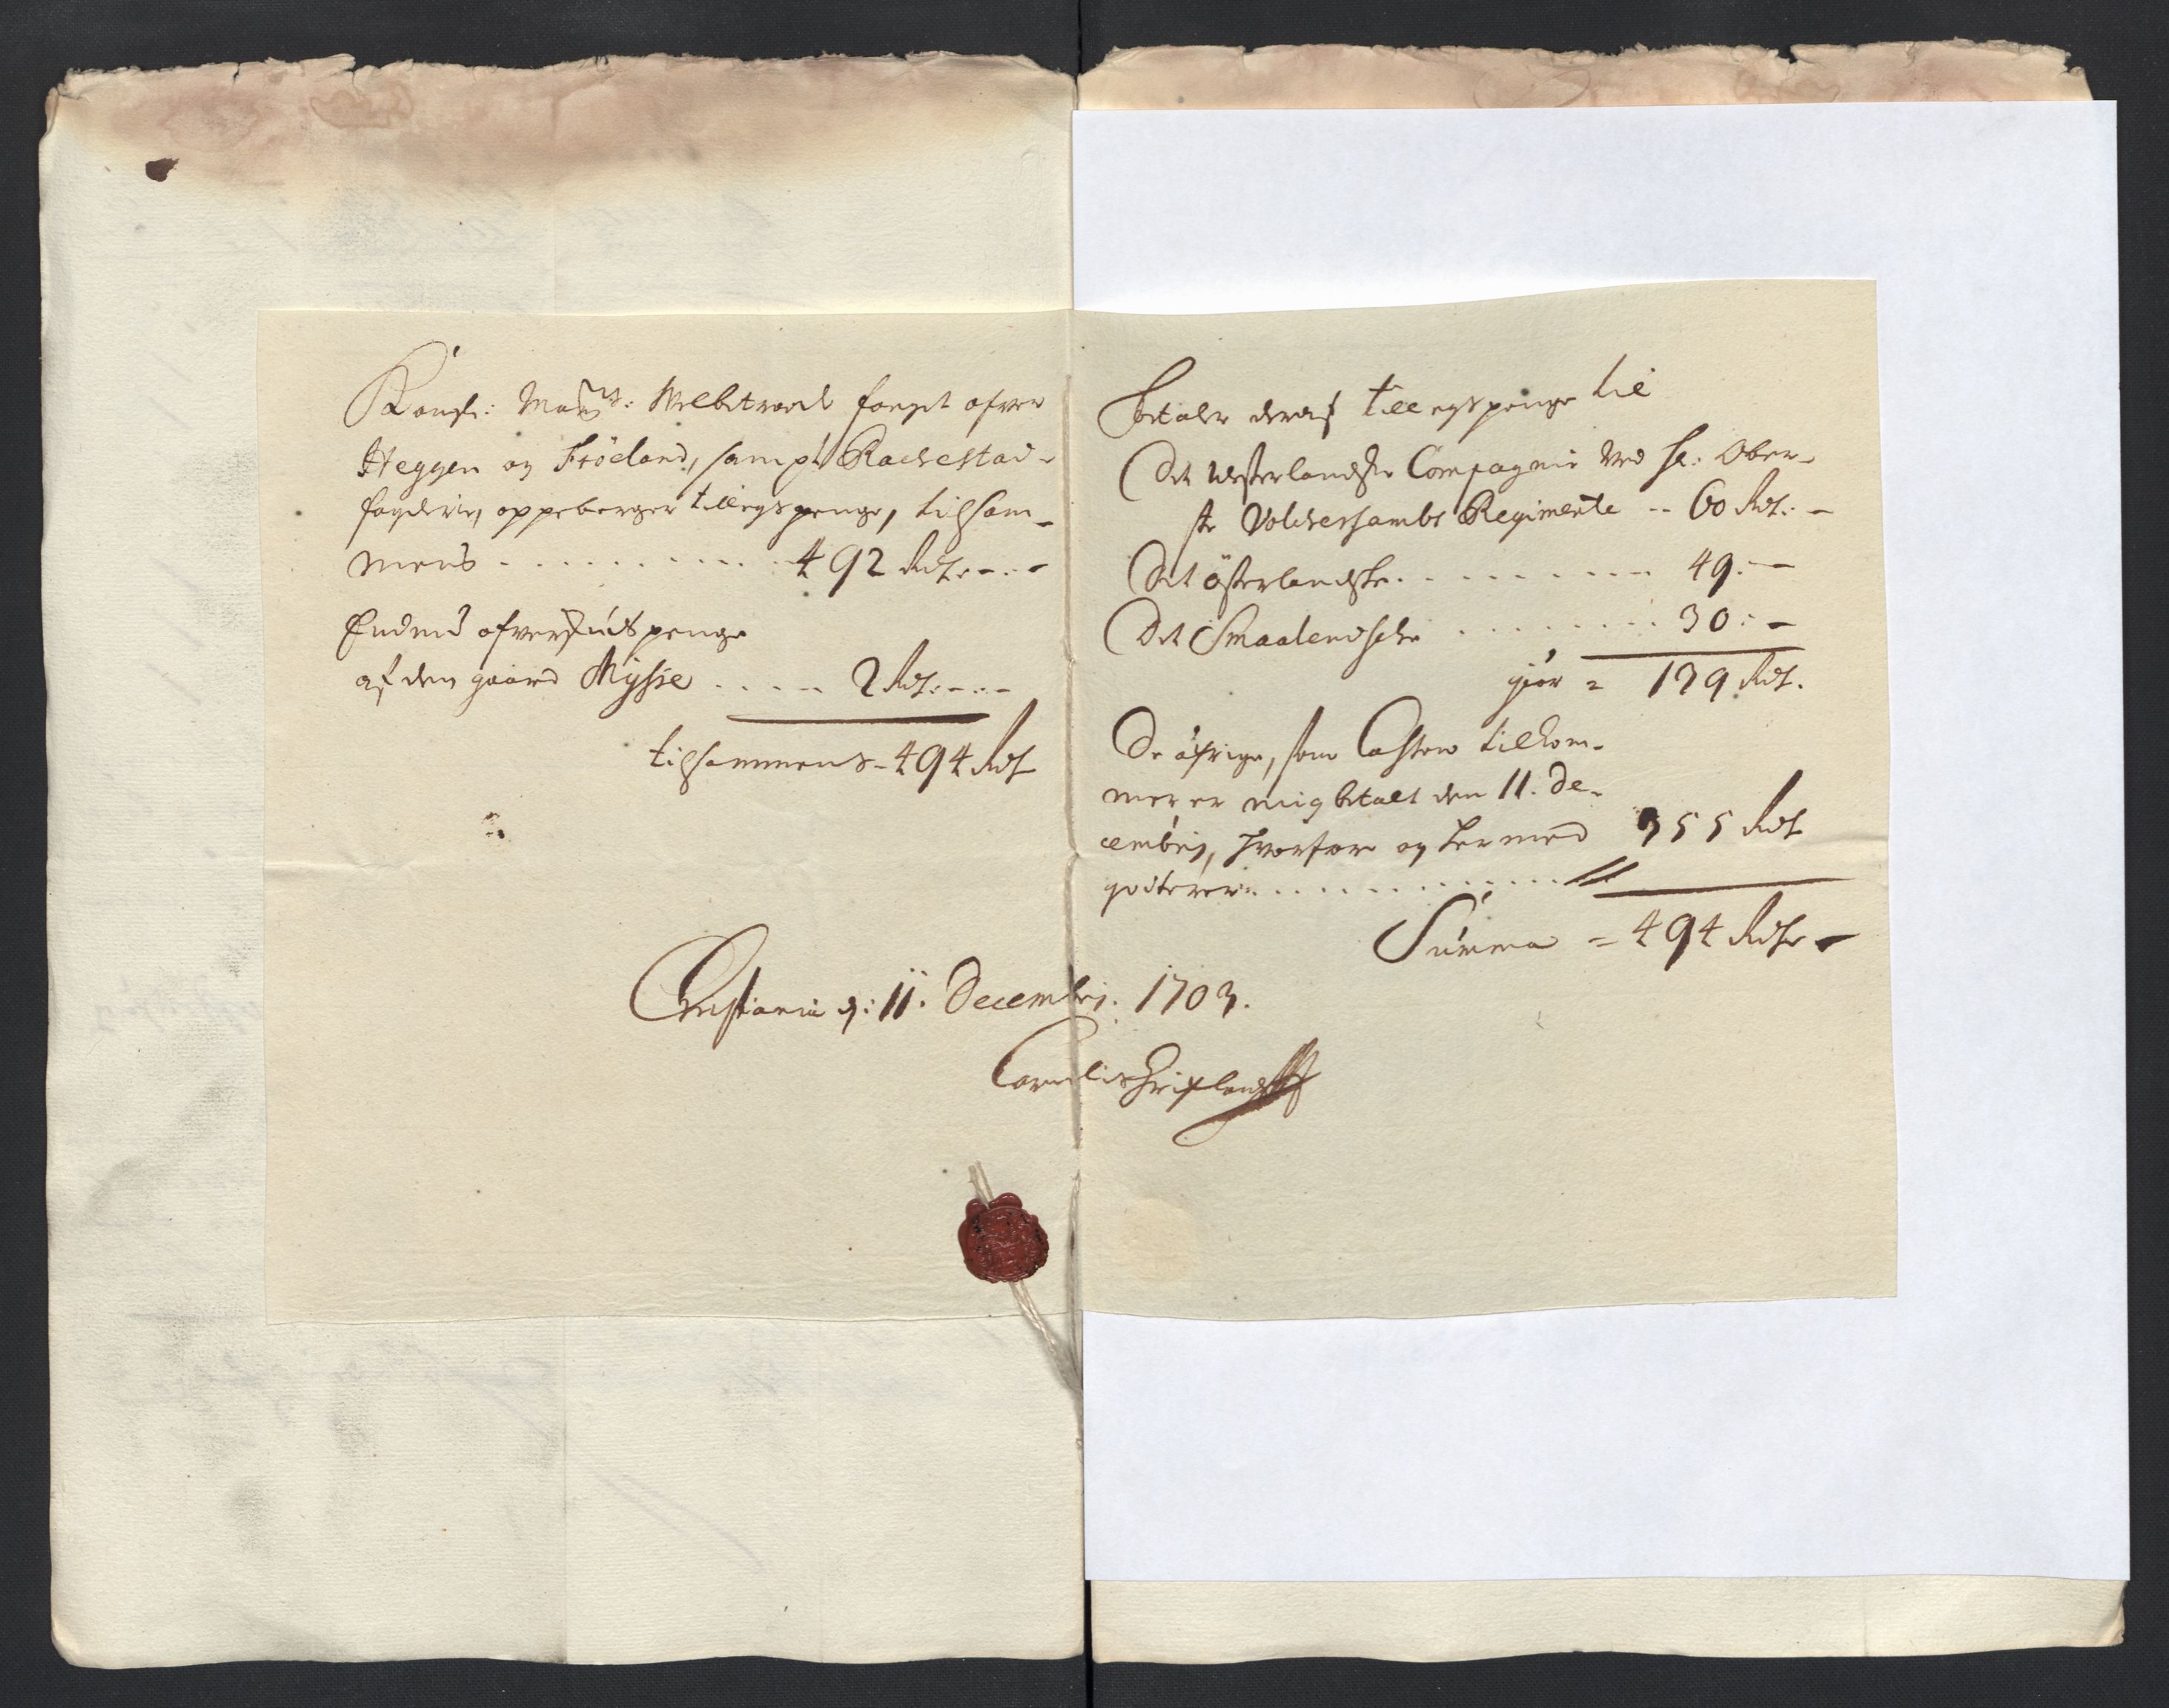 Kongl: Mayts: Welbetroed foegt ofver
Heggen og Fröeland, sampt Rackestad-
fogderie, oppeberger tillegs penge, tilsam-
mens . . . . . . . . . . . 492 Rdr.-.-
Endnu ofverskuds penge
af den gaard Mysse . . . . . 2 Rdr.-.-
tilsammens - 494 Rdr
betaler deraf tillegs penge til
Det Vesterlandske Compagnie ved hr: Ober-
ste Volckersambs Regimente -- 60 Rdr.-
Det österlandske . . . . . . . . . 49.-
Det Smaalendsche . . . . . . . . . 30:-
giör = 139 Rdr.
De öfrige, som Casten tilkom-
mer er mig betalt den 11. De-
cembris, hvorfore og hermed 355 Rdr
qviterer . . . . . . . . . . . .
Summa = 494 Rdr -
Christiania d: 11. Decembris. 1703.